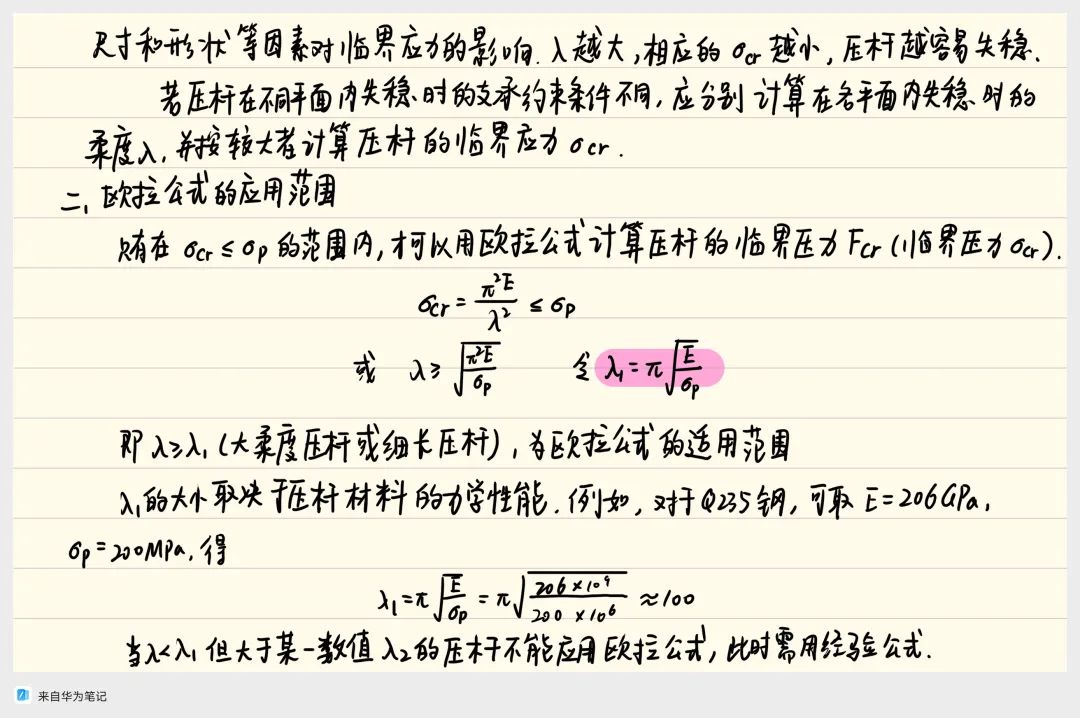 尺寸和形状等因素对临界应力的影响. λ越大,相应的σcr越小,压杆越容易失稳.
若压杆在不同平面内失稳时的支承约束条件不同,应分别计算在各平面内失稳时的
柔度λ,并按较大者计算压杆的临界应力σcr.
二、欧拉公式的应用范围
只有在σcr≤σp的范围内,才可以用欧拉公式计算压杆的临界压力Fcr(临界压力σcr).
σcr=π²E/λ²≤σp
或 λ≥√(π²E/σp) 令 λ₁=π√(E/σp)
即λ≥λ₁(大柔度压杆或细长压杆),为欧拉公式的适用范围
λ₁的大小取决于压杆材料的力学性能.例如,对于Q235钢,可取E=206GPa,
σp=200MPa,得
λ₁=π√(E/σp)=π√(206×10⁹/200×10⁶)≈100
当λ<λ₁但大于某一数值λ₂的压杆不能应用欧拉公式,此时需用经验公式.
来自华为笔记